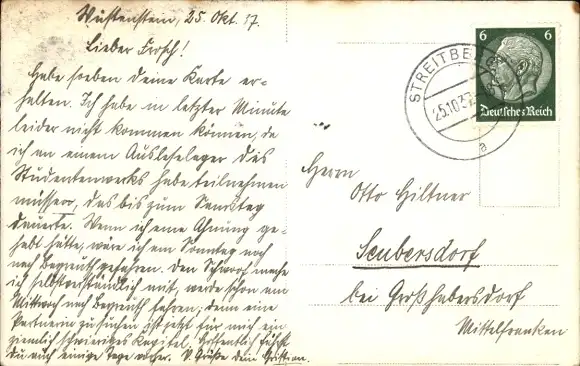 Wüstenstein, 25. Okt. 37.
Lieber Frosch!
Habe soeben deine Karte er-
halten. Ich habe in letzter Minute
leider nicht kommen können, da
ich an einem Ausleselager des
Studentenwerks habe teilnehmen
müssen, das bis zum Samstag
dauerte. Wenn ich eine Ahnung ge-
habt hätte, wäre ich am Sonntag noch
nach Bayreuth gefahren. Den mache
ich selbstverständlich mit, werde schon am
Mittwoch nach Bayreuth fahren; denn eine
Partnerin zu suchen ist jetzt für mich ein
ziemlich schwieriges Kapitel. Hoffentlich fährst
du auch einige Tage vorher. V. Grüße dein
Herrn
Otto Hiltner
Seubersdorf
bei Großhabersdorf
Mittelfranken
6 6
Deutsches Reich
STREITBERG
25.10.37
a